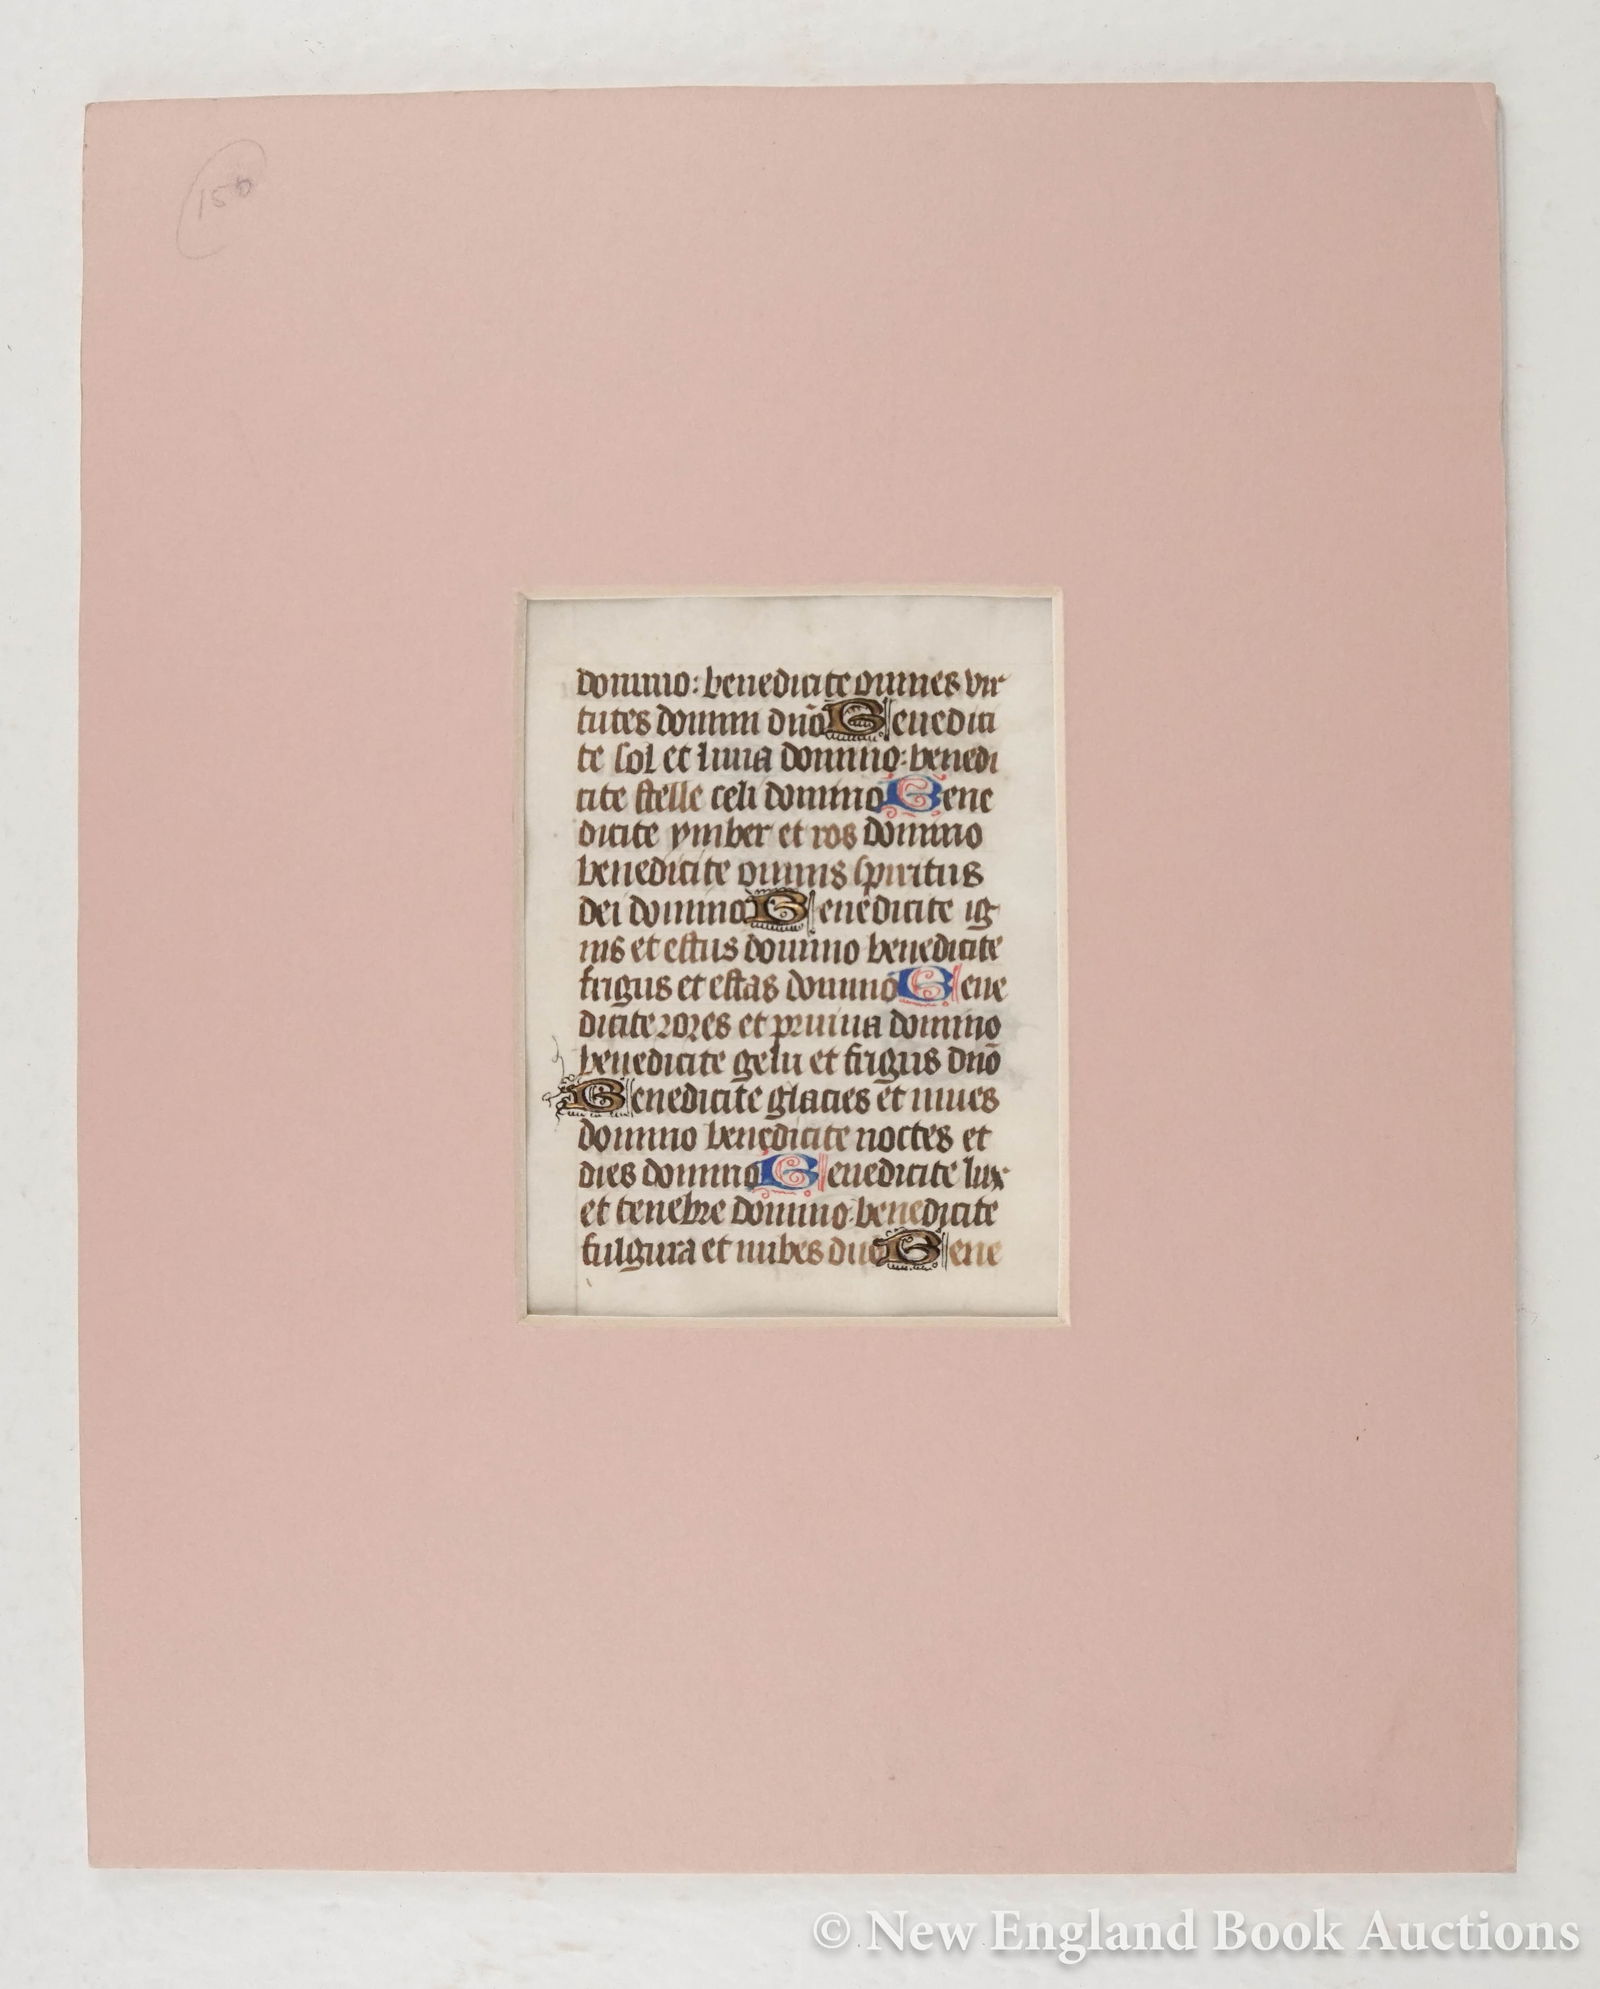 150
domino: benedicite omnes vir
tutes domini dnō Benedici
te sol et luna domino: benedi
cite stelle celi domino Bene
dicite ymber et ros domino
benedicite omnis spiritus
dei domino Benedicite ig
nis et estus domino benedicite
frigus et estas domino Bene
dicite rores et pruina domino
benedicite gelu et frigus dnō
Benedicite glacies et niues
domino benedicite noctes et
dies domino Benedicite lux
et tenebre domino benedicite
fulgura et nubes dno Bene
© New England Book Auctions